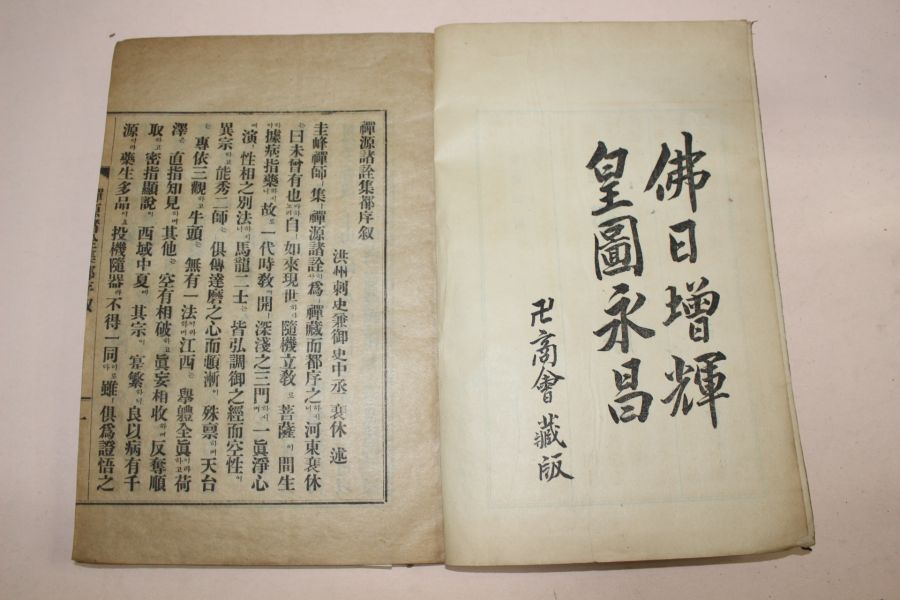 佛日增輝
皇圖永昌
卍商會藏版
禪源諸詮集都序叙
洪州刺史兼御史中丞 裵休 述
圭峰禪師ㅣ集ㅣ禪源諸詮하사爲ㅣ禪藏而都序之하시니河東裵休
는曰未曾有也라하노라自ㅣ如來現世하사隨機立敎로菩薩이間生
하사據病指藥하시니故로一代時敎에開ㅣ深淺之三門하시며一眞淨心에
演ㅣ性相之別法하시니馬龍二士는皆弘調御之經而空性이
異宗하고能秀二師는俱傳達磨之心而頓漸이殊禀하며天台
는專依三觀하고牛頭는無有一法이라하며江西는擧體全眞이라하고荷
澤은直指知見하며其他는空有相破하고眞妄相收하며反奪順
取하고密指顯說이西域中夏에其宗이寔繁하니良以病有千
源이라藥生多品이요投機隨器라不得一同이니雖ㅣ俱爲證悟之
一